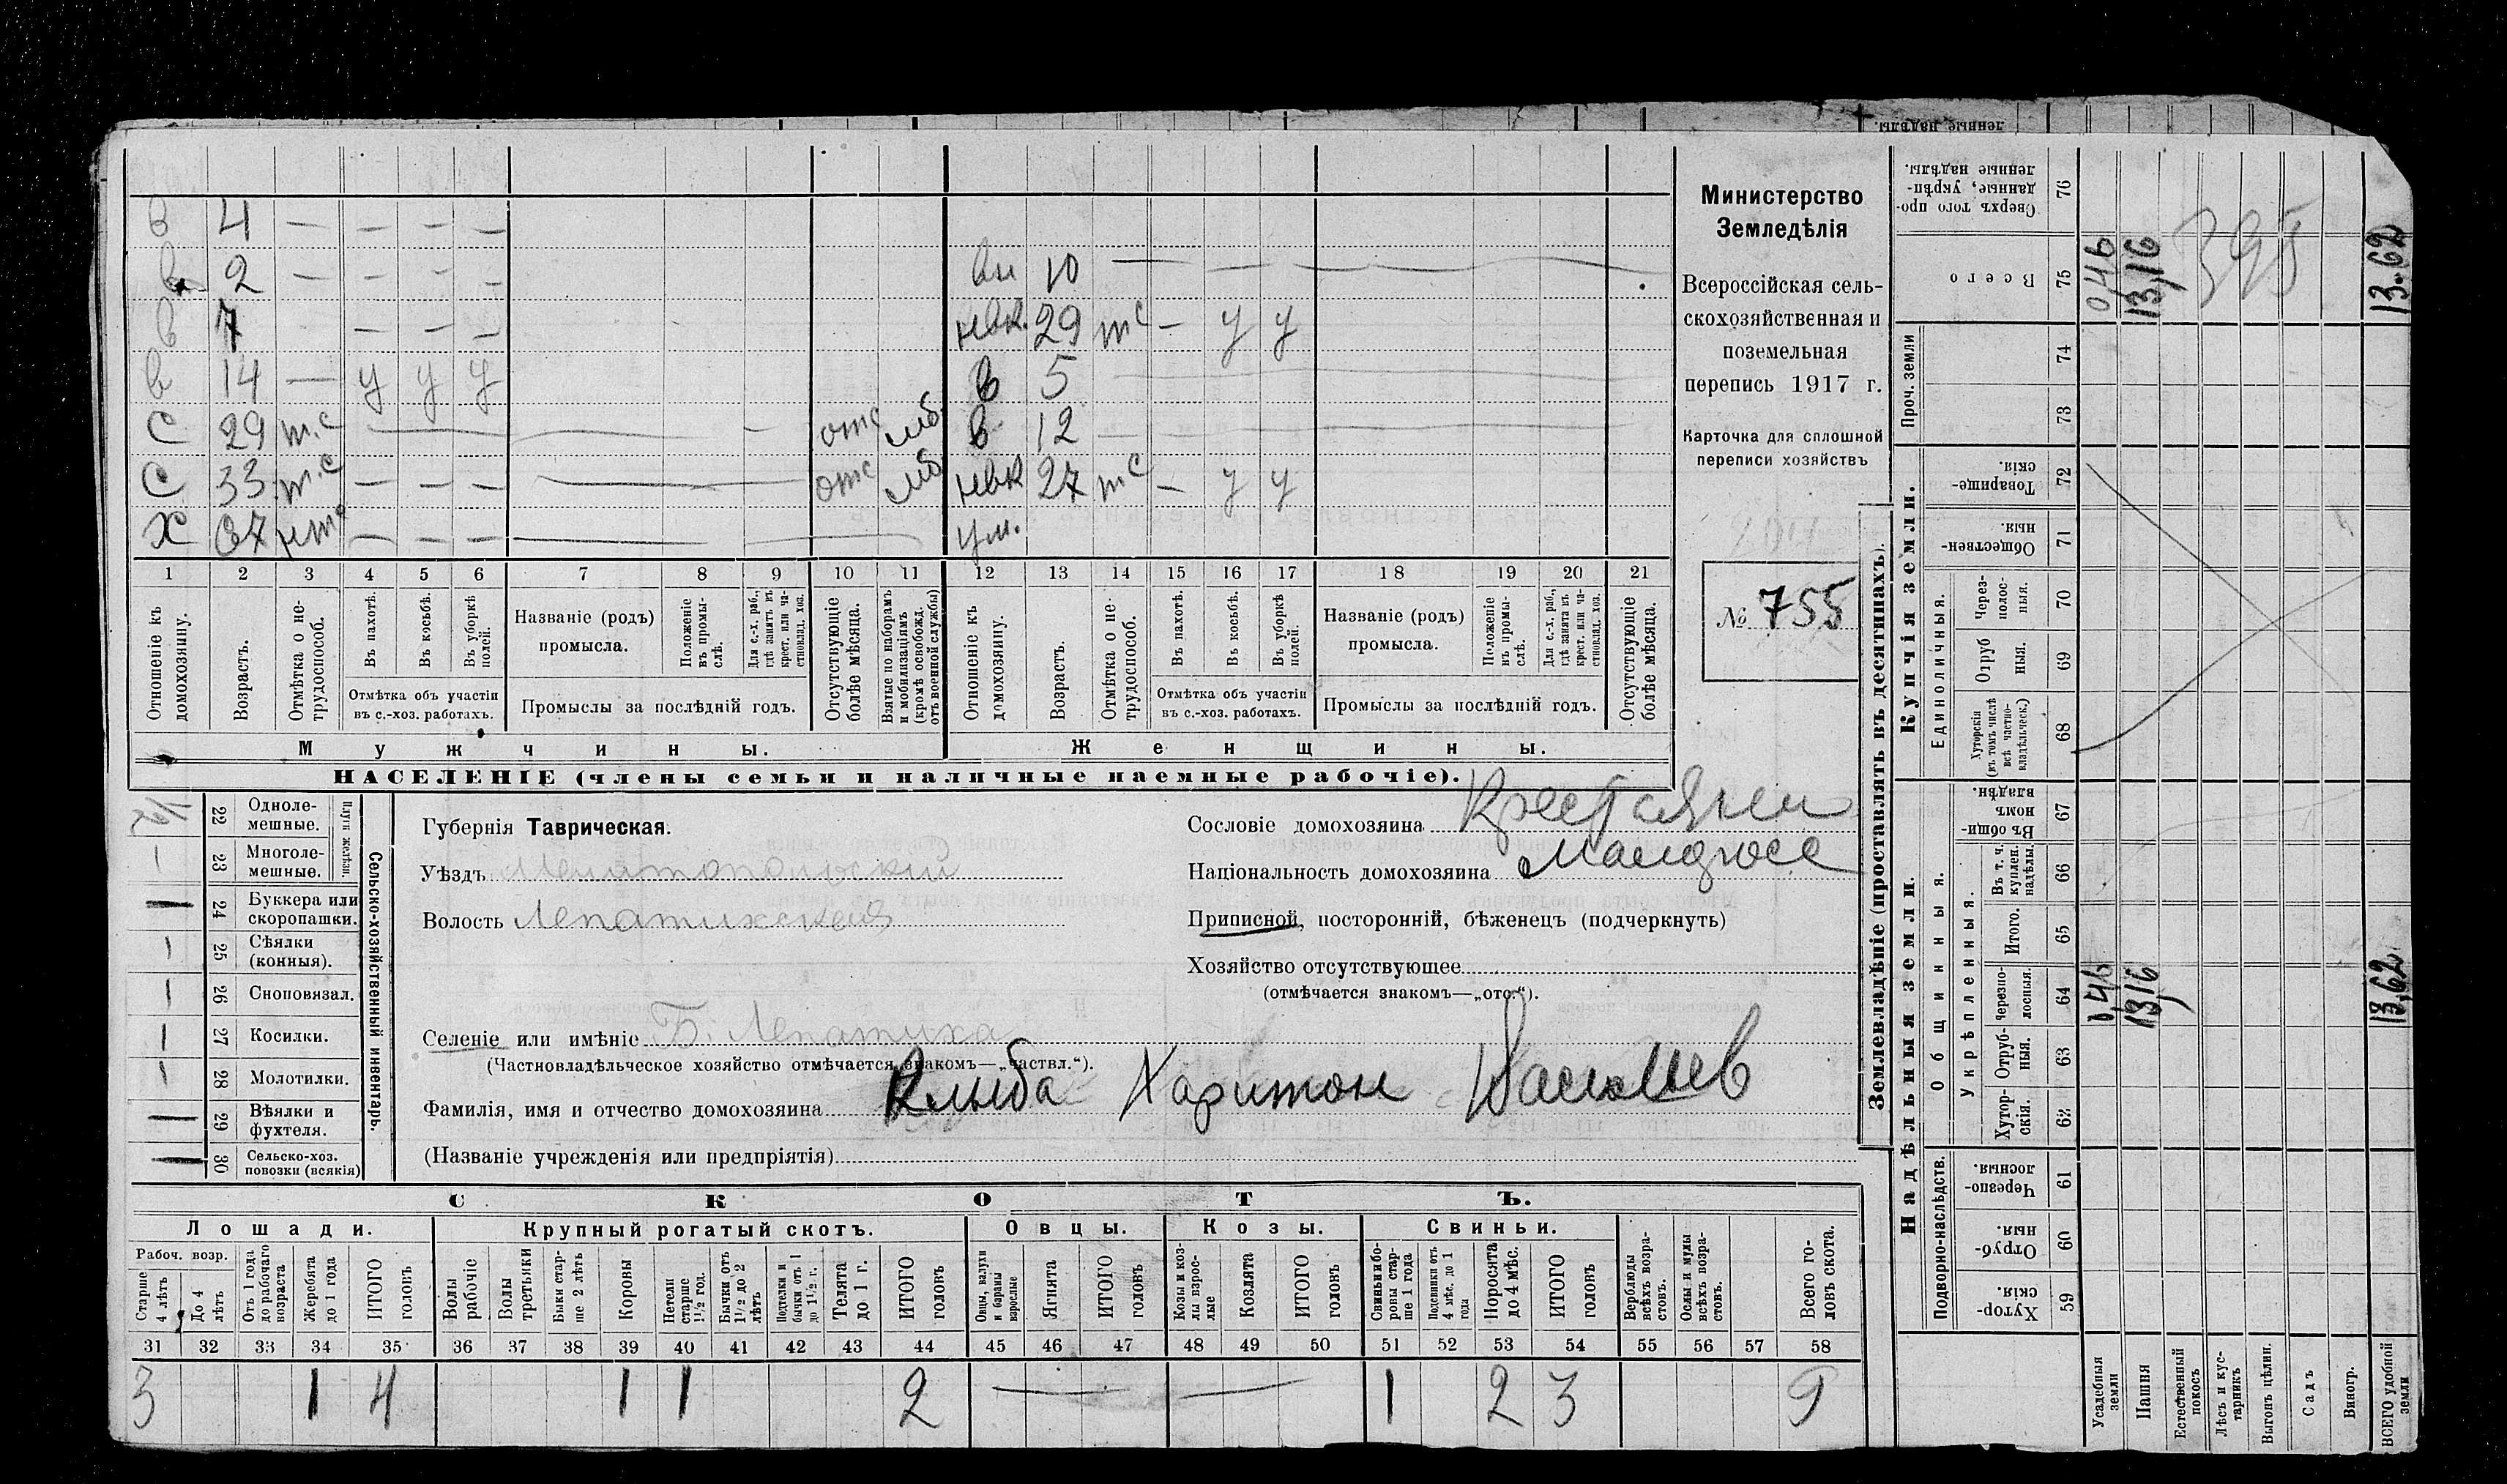 в 4 — — — —
в 2 — — - - вн 10 —
в 7 — — — невк. 29 тс — у у
в 14 — у у у в 5 —
С 29 т.с — — отс мб. в 12 —
С 33 т.с — — — — отс мб невк 27 тс — у у
Х 67 нтс — — — — — ум.
1 2 3 4 5 6 7 8 9 10 11 12 13 14 15 16 17 18 19 20 21
Отношеніе къ домохозяину.
Возрастъ.
Отмѣтка о не-трудоспособ.
Въ пахотѣ.
Въ косьбѣ.
Въ уборкѣ полей.
Отмѣтка объ участіи въ с.-хоз. работахъ.
Названіе (родъ) промысла.
Положеніе въ промы-слѣ.
Для с.-х. раб., гдѣ занятъ въ крест. или ча-стновлад. хоз.
Промыслы за послѣдній годъ.
Отсутствующіе болѣе мѣсяца.
Взятые по наборамъ и мобилизаціямъ (кромѣ освобожд. отъ военной службы)
Отношеніе къ домохозяину.
Возрастъ.
Отмѣтка о не трудоспособ.
Въ пахотѣ.
Въ косьбѣ.
Въ уборкѣ полей.
Отмѣтка объ участіи въ с.-хоз. работахъ.
Названіе (родъ) промысла.
Положеніе въ промы-слѣ.
Для с.-х. раб., гдѣ занятъ въ крест. или ча-стновлад. хоз.
Промыслы за послѣдній годъ.
Отсутствующіе болѣе мѣсяца.
Мужчины. Женщины.
НАСЕЛЕНІЕ (члены семьи и наличные наемные рабочіе).
Министерство
Земледѣлія
Всероссійская сель-
скохозяйственная и
поземельная
перепись 1917 г.
Карточка для сплошной
переписи хозяйствъ
№ 755
22 Одноле-мешные.
23 Многоле-мешные.
Плуги желѣзн.
24 Буккера или скоропашки.
25 Сѣялки (конныя).
26 Сноповязал.
27 Косилки.
28 Молотилки.
29 Вѣялки и фухтеля.
30 Сельско-хоз. повозки (всякія)
Сельско-хозяйственный инвентарь.
Губернія Таврическая.
Уѣздъ Мелитопольскій
Волость Лепатихская
Селеніе или имѣніе Б. Лепатиха
(Частновладѣльческое хозяйство отмѣчается знакомъ—„частвл.“).
Фамилія, имя и отчество домохозяина Клыба Харитон
(Названіе учрежденія или предпріятія)
Сословіе домохозяина Крестьянин
Національность домохозяина Малорос
Приписной, посторонній, бѣженецъ (подчеркнуть)
Хозяйство отсутствующее
(отмѣчается знакомъ—„отс.“).
СКОТЪ.
Лошади. Крупный рогатый скотъ. Овцы. Козы. Свиньи.
Рабоч. возр.
Старше 4 лѣтъ
До 4 лѣтъ
Отъ 1 года до рабочаго возраста
Жеребята до 1 года
ИТОГО головъ
Волы рабочіе
Волы третьяки
Быки стар-ше 2 лѣтъ
Коровы
Нетели старше 1½ год.
Бычки отъ 1½ до 2 лѣтъ
Подтелки и бычки отъ 1 до 1½ г.
Телята до 1 г.
ИТОГО головъ
Овцы, валухи и бараны взрослые
Ягнята
ИТОГО головъ
Козы и коз-лы взрос-лые
Козлята
ИТОГО головъ
Свиньи и бо-ровы стар-ше 1 года
Подсвинки отъ 4 мѣс. до 1 года
Поросята до 4 мѣс.
ИТОГО головъ
Верблюды всѣхъ возра-стовъ.
Ослы и мулы всѣхъ возра-стовъ.
Всего го-ловъ скота.
31 32 33 34 35 36 37 38 39 40 41 42 43 44 45 46 47 48 49 50 51 52 53 54 55 56 57 58
3 1 4 1 1 2 — — 1 2 3 9
Землевладѣніе (проставлять въ десятинахъ).
Надѣльныя земли. Купчія земли. Проч. земли
Подворно-наслѣдств.
Общинныя.
Укрѣпленныя.
Единоличныя.
Хутор-скія. 59
Отруб-ныя. 60
Черезпо-лосныя. 61
Хутор-скія. 62
Отруб-ныя. 63
Черезпо-лосныя. 64
Итого. 65
Въ т. ч. куплен. надѣлы. 66
Въ общи-номъ владѣн. 67
Хуторскія (въ томъ числѣ всѣ частно-владѣльческ.) 68
Отруб ныя. 69
Через-полос-ныя. 70
Обществен-ныя. 71
Товарище-скія. 72
73
74
Всего 75
Сверхъ того про-данные, укрѣп-ленные надѣлы. 76
ленные надѣлы.
Усадебныя земли 0,46 0,46
Пашня 13,16 13,16
Естественный покосъ
Лѣсъ и кус-тарникъ
Выгонъ цѣлин.
Садъ
Виногр.
ВСЕГО удобной земли 13,62 13.62
395